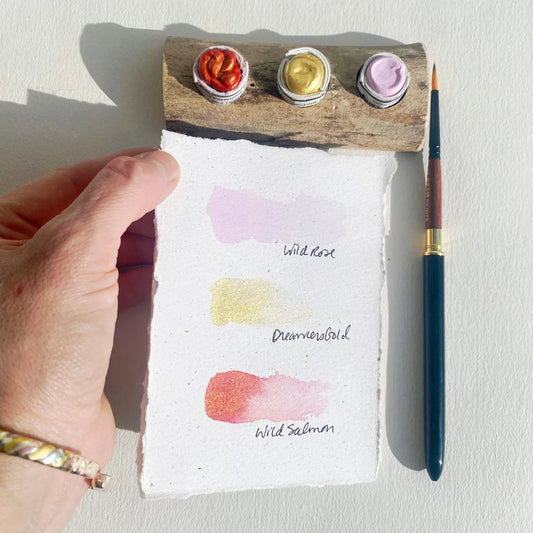 Wild Rose
DreamersGold
Wild Salmon